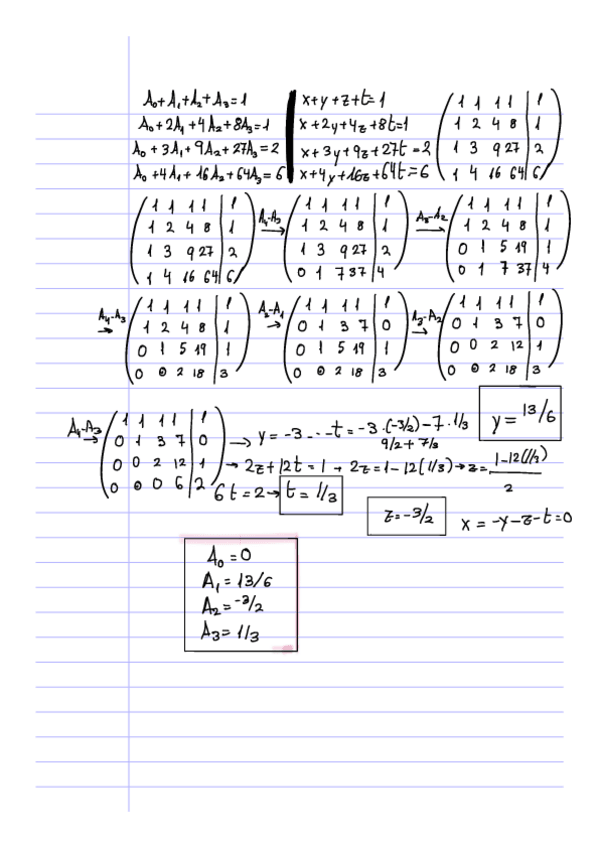 A₀+A₁+A₂+A₃=1
A₀+2A₁+4A₂+8A₃=1
A₀+3A₁+9A₂+27A₃=2
A₀+4A₁+16A₂+64A₃=6
x+y+z+t=1
x+2y+4z+8t=1
x+3y+9z+27t=2
x+4y+16z+64t=6
1 1 1 1 | 1
1 2 4 8 | 1
1 3 9 27 | 2
1 4 16 64 | 6
1 1 1 1 | 1
1 2 4 8 | 1
1 3 9 27 | 2
1 4 16 64 | 6
→
1 1 1 1 | 1
1 2 4 8 | 1
1 3 9 27 | 2
0 1 7 37 | 4
→
1 1 1 1 | 1
1 2 4 8 | 1
0 1 5 19 | 1
0 1 7 37 | 4
A₄-A₃ →
1 1 1 1 | 1
1 2 4 8 | 1
0 1 5 19 | 1
0 0 2 18 | 3
A₂-A₁ →
1 1 1 1 | 1
0 1 3 7 | 0
0 1 5 19 | 1
0 0 2 18 | 3
A₃-A₂ →
1 1 1 1 | 1
0 1 3 7 | 0
0 0 2 12 | 1
0 0 2 18 | 3
y = 13/6
A₄-A₃ →
1 1 1 1 | 1
0 1 3 7 | 0
0 0 2 12 | 1
0 0 0 6 | 2
→ y = -3 - ·· t = -3·(-3/2) - 7·1/3
9/2 + 7/3
→ 2z+12t=1 → 2z=1-12(1/3) → z= 1-12(1/3) / 2
6t=2 → t=1/3
z=-3/2
x = -y-z-t=0
A₀=0
A₁=13/6
A₂=-3/2
A₃=1/3